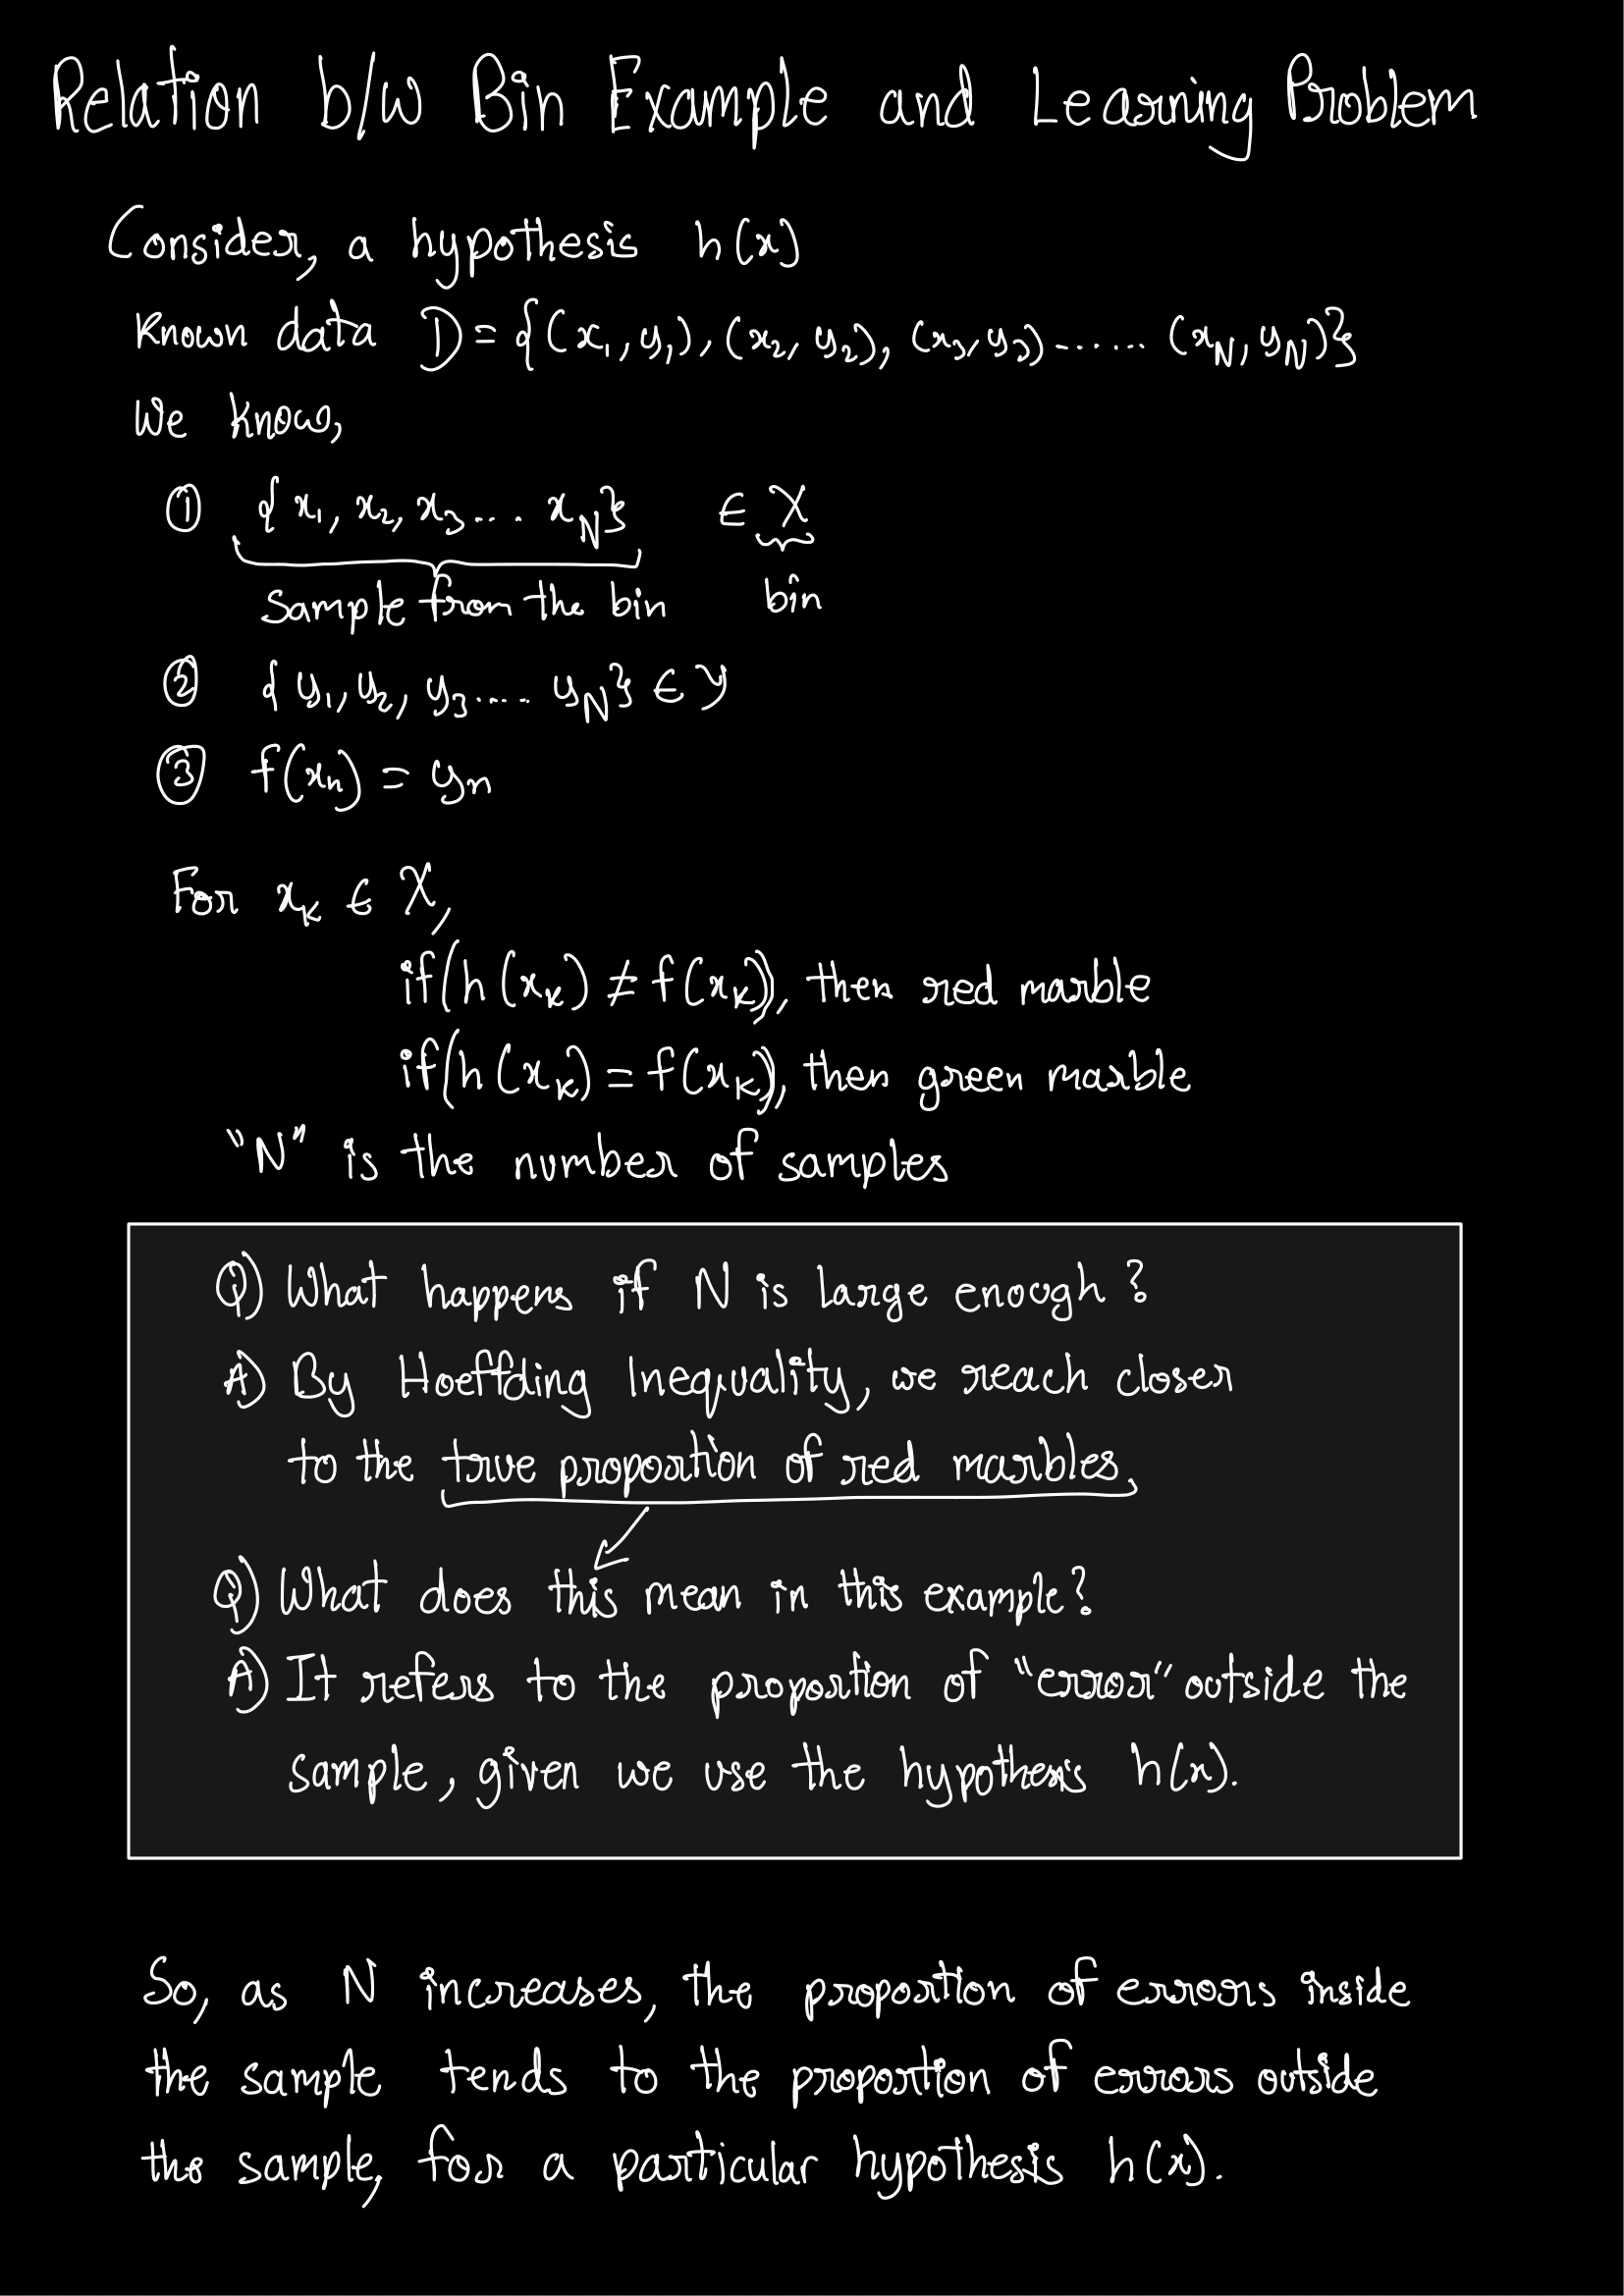 Relation b/w Bin Example and Learning Problem
Consider, a hypothesis h(x)
Known data D = {(x₁, y₁), (x₂, y₂), (x₃, y₃) ...... (x_N, y_N)}
We know,
① {x₁, x₂, x₃ .... x_N} ∈ X
Sample from the bin bin
② {y₁, y₂, y₃ ..... y_N} ∈ Y
③ f(xₙ) = yₙ
For x_k ∈ X,
if(h(x_k) ≠ f(x_k)), then red marble
if(h(x_k) = f(x_k)), then green marble
"N" is the number of samples
Q) What happens if N is large enough?
A) By Hoeffding Inequality, we reach closer
to the true proportion of red marbles.
Q) What does this mean in this example?
A) It refers to the proportion of "error" outside the
sample, given we use the hypothesis h(x).
So, as N increases, the proportion of errors inside
the sample tends to the proportion of errors outside
the sample, for a particular hypothesis h(x).